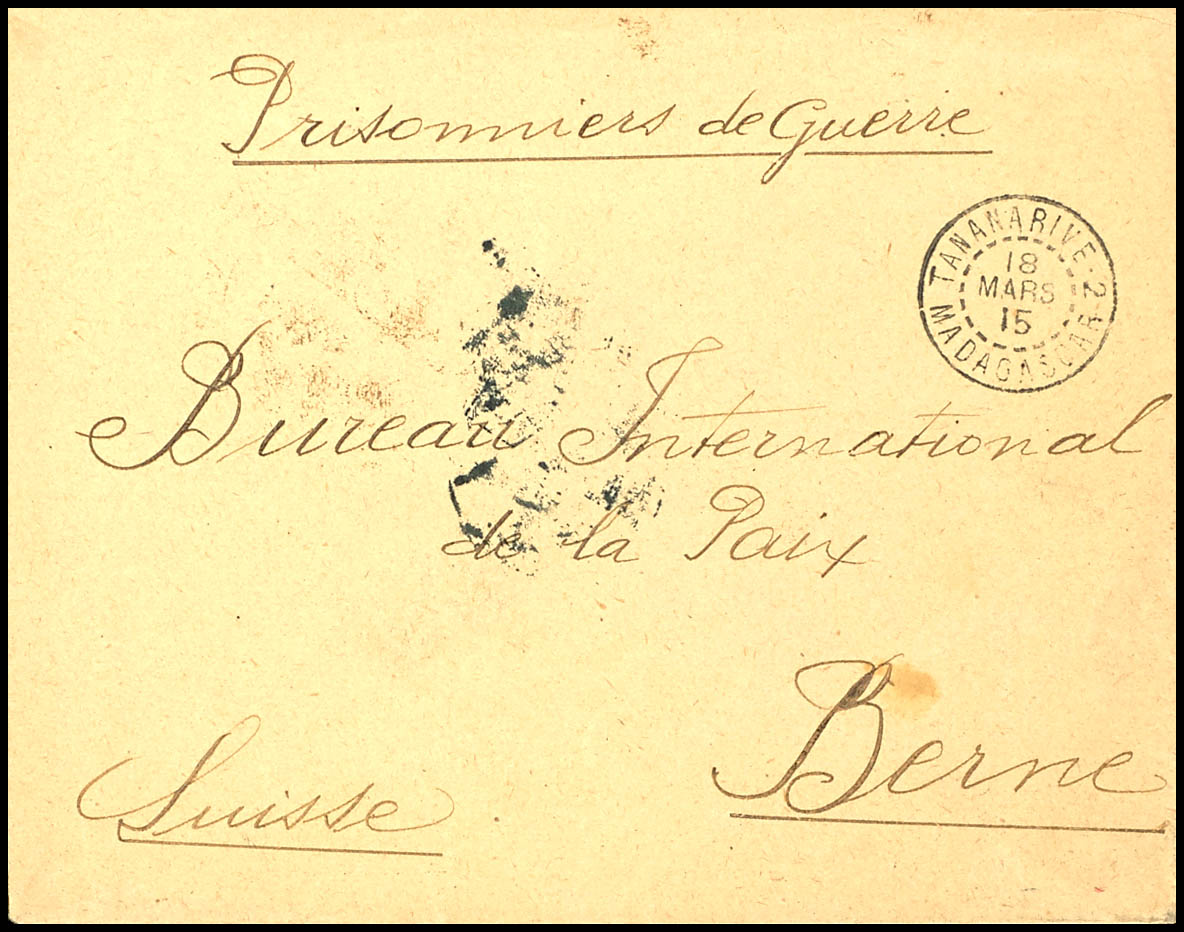 Prisonniers de Guerre
TANANARIVE-2
18
MARS
15
MADAGASCAR
Bureau International
de la Paix
Berne
Suisse